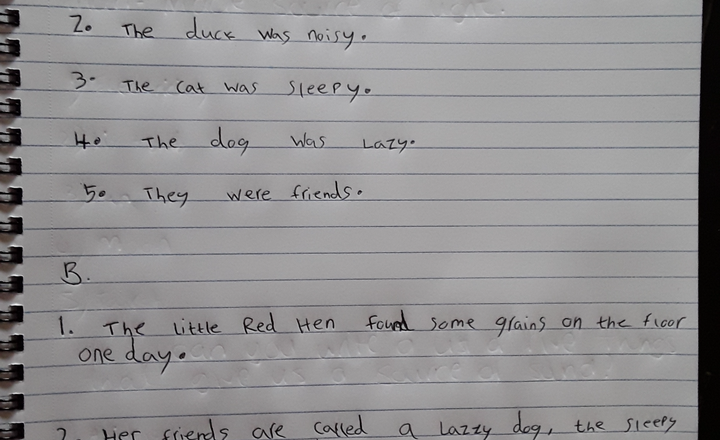 2. The duck was noisy.
3. The cat was sleepy.
4. The dog was Lazy.
5. They were friends.
B.
1. The Little Red Hen found some grains on the floor
one day.
2. Her friends are called a Lazzy dog, the sleepy